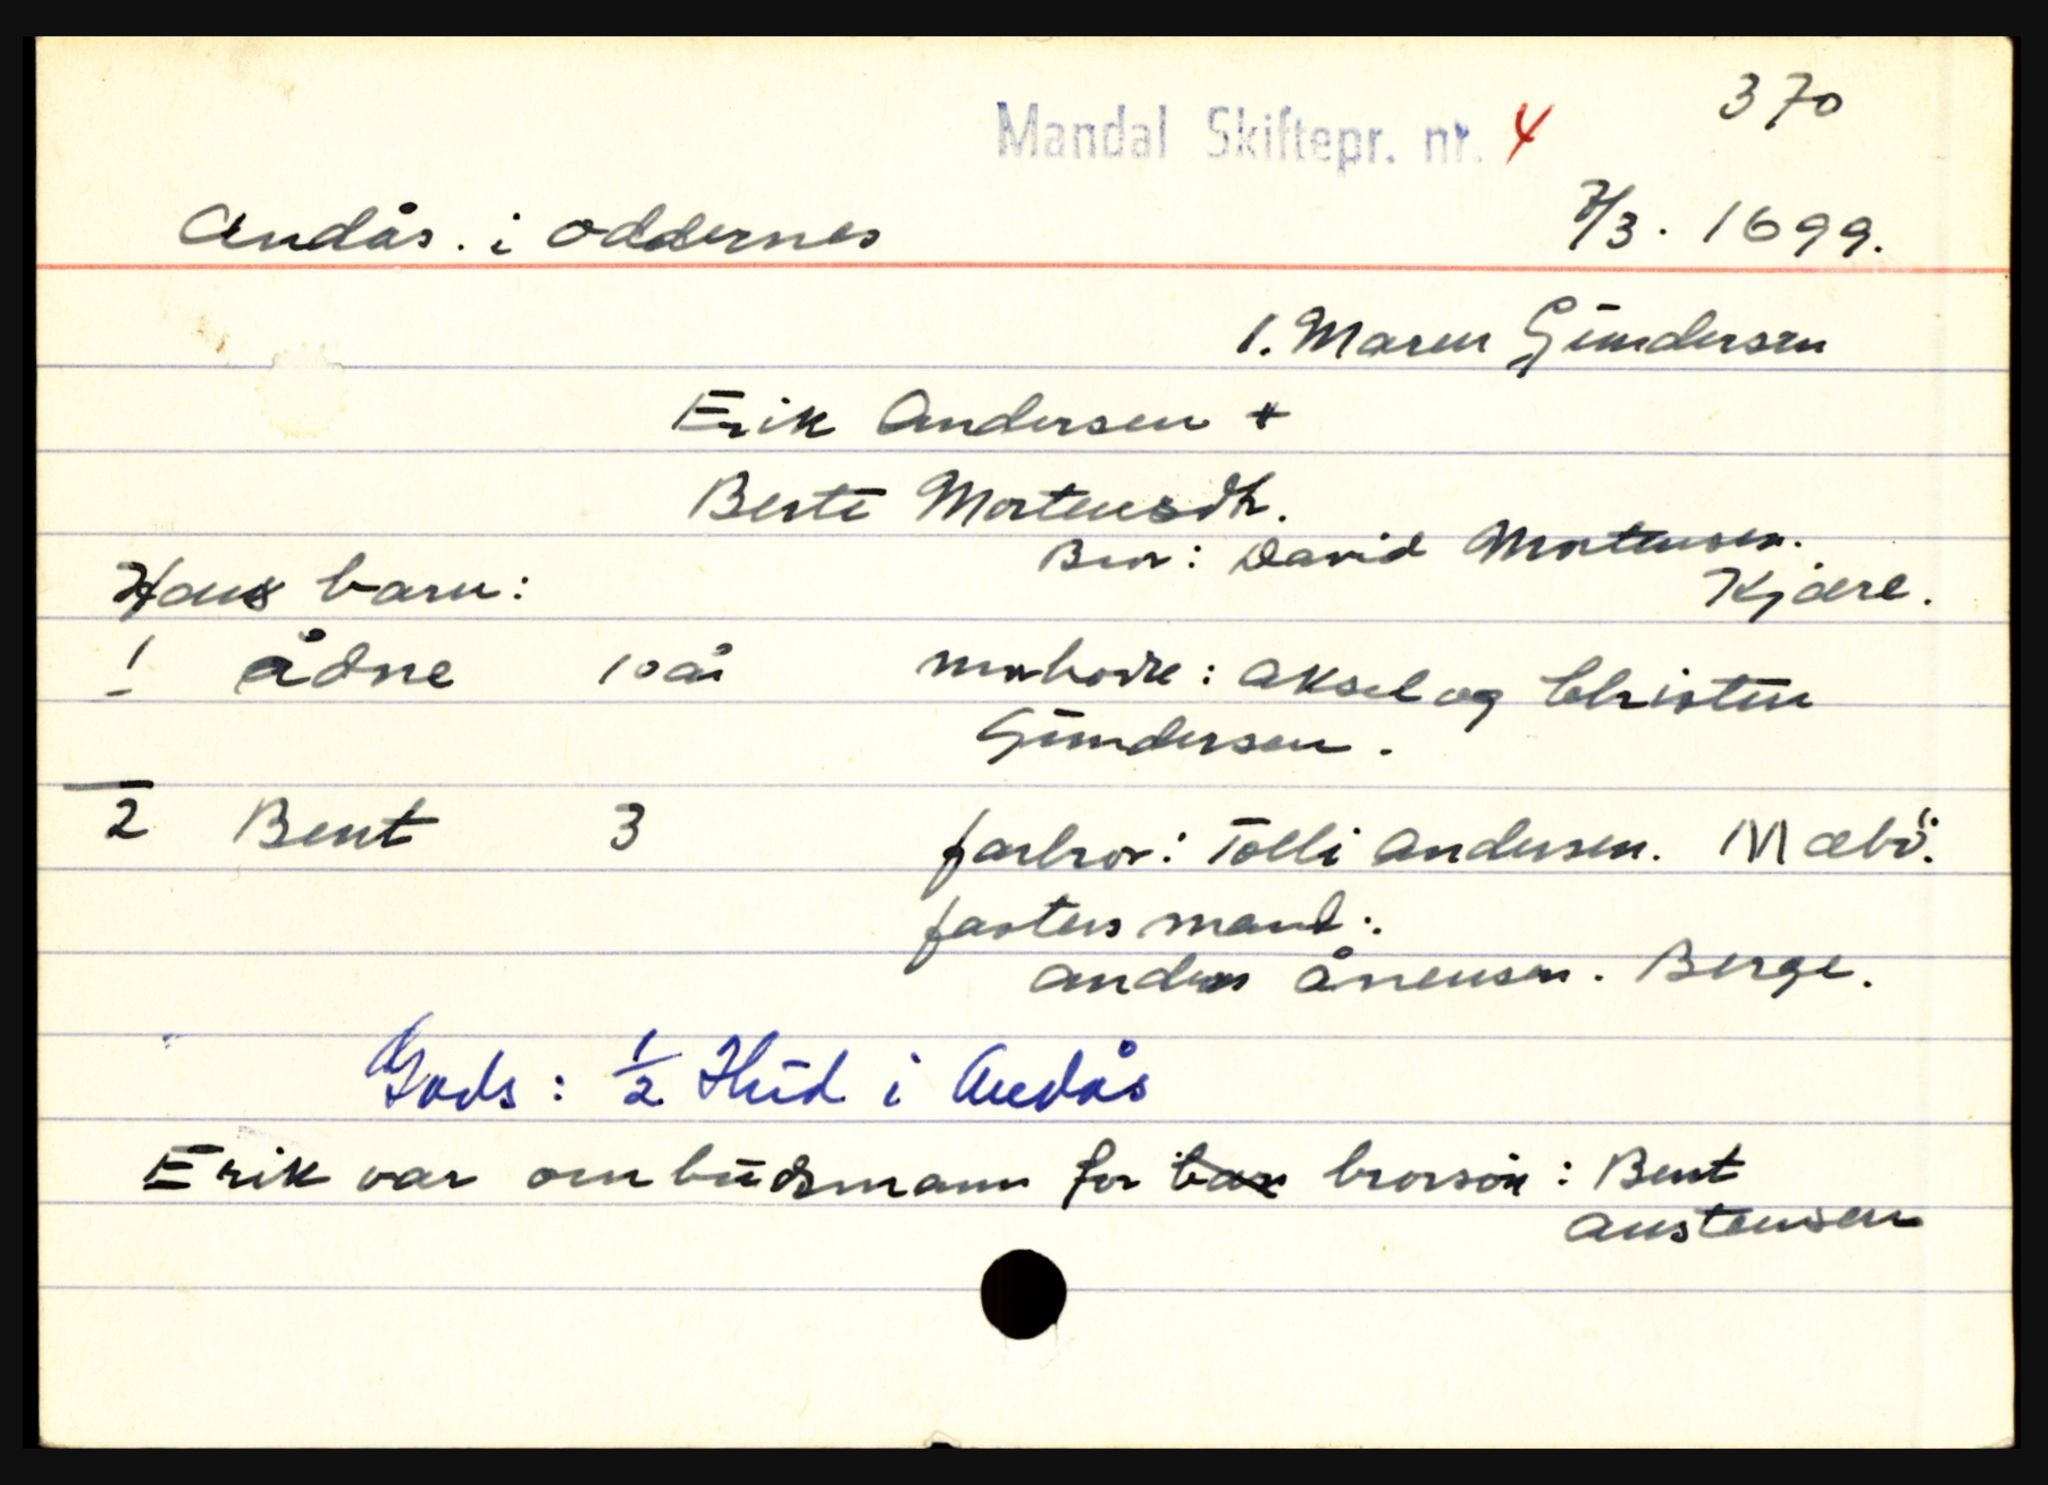 370
Mandal Skiftepr. nr. 4
Andås. i Oddernes 7/3. 1699.
1. Maren Gundersen
Erik Andersen +
Berte Mortensdtr.
Bror: David Mortensen.
Kjære.
Hans barn:
1 Ådne 10 år morbrødre: Aksel og Christen
Gundersen.
2 Bent 3 farbror: Tolli Andersen. Mæbö.
fasters mand:
Anders Ånensen. Berge.
Gods: 1/2 Hud i Andås
Erik var ombudsmann for brorsön: Bent
Austensen